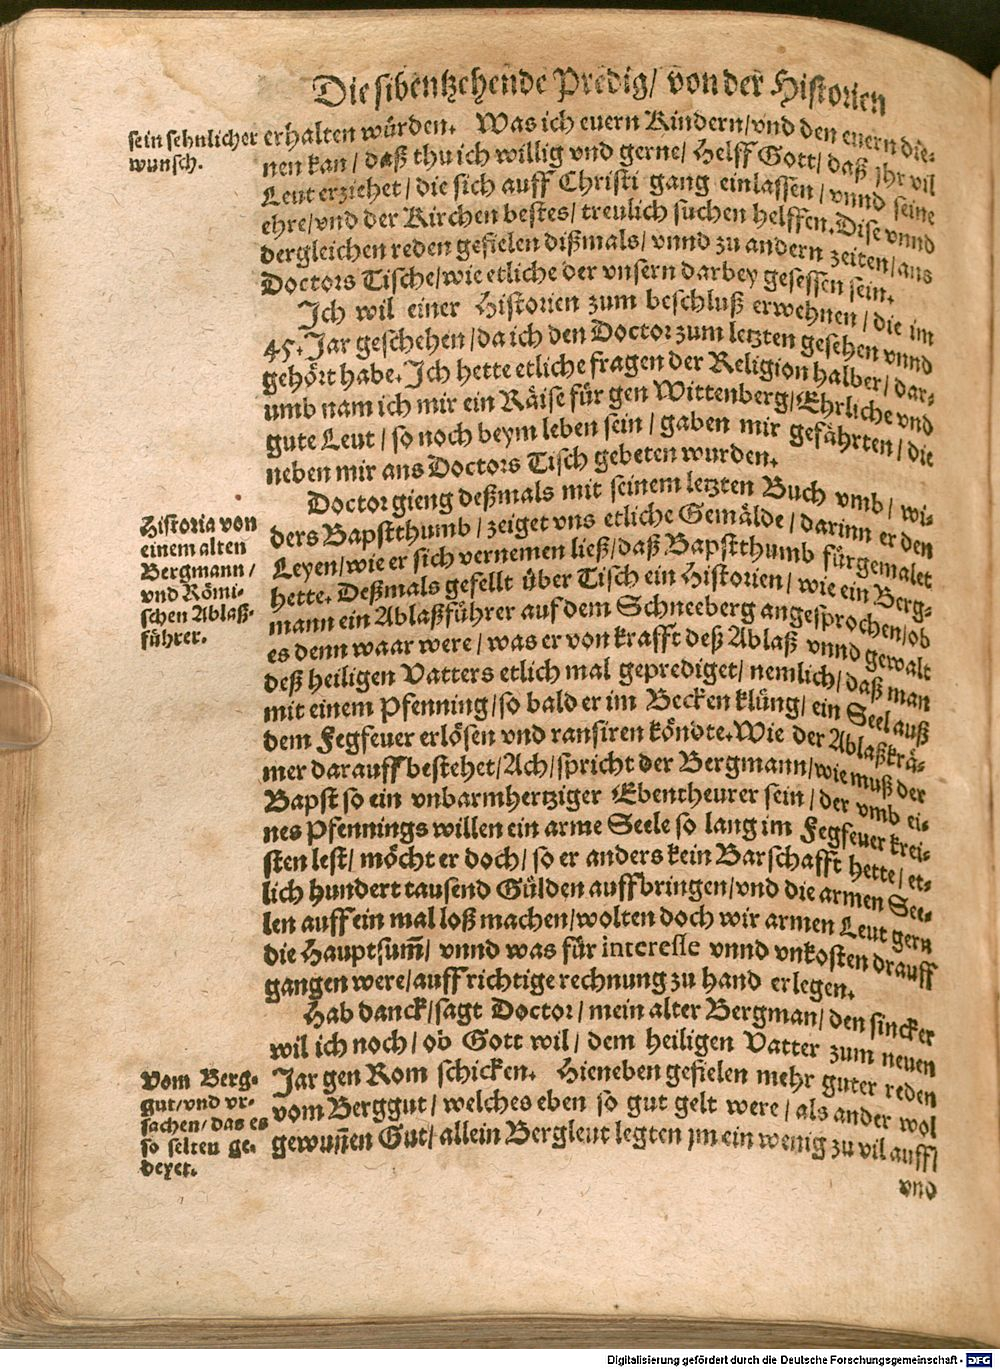 Die sibentzehende Predig/ von der Historien
sein sehnlicher
wunsch.
erhalten würden. Was ich euern Kindern/vnd den euern die-
nen kan/ daß thu ich willig vnd gerne/ Helff Gott/ daß jhr vil
Leut erziehet/ die sich auff Christi gang einlassen/ vnnd seine
ehre/vnd der Kirchen bestes/ treulich suchen helffen. Dise vnnd
dergleichen reden gefielen dißmals/ vnnd zu andern zeiten/ans
Doctors Tische/wie etliche der vnsern darbey gesessen sein.
Ich wil einer Historien zum beschluß erwehnen/ die im
45. Jar geschehen/da ich den Doctor zum letzten gesehen vnnd
gehört habe. Ich hette etliche fragen der Religion halber/ dar-
umb nam ich mir ein Räise für gen Wittenberg/ Ehrliche vnd
gute Leut/ so noch beym leben sein/ gaben mir gefährten/ die
neben mir ans Doctors Tisch gebeten wurden.
Historia von
einem alten
Bergmann/
vnd Römi-
schen Ablaß-
führer.
Doctor gieng deßmals mit seinem letzten Buch vmb/ wi-
ders Bapstthumb/ zeiget vns etliche Gemälde/ darinn er den
Leyen/wie er sich vernemen ließ/daß Bapstthumb fürgemalet
hette. Deßmals gefellt über Tisch ein Historien/ wie ein Berg-
mann ein Ablaßführer auf dem Schneeberg angesprochen/ob
es denn waar were/ was er von krafft deß Ablaß vnnd gewalt
deß heiligen Vatters etlich mal geprediget/ nemlich/ daß man
mit einem Pfenning/so bald er im Becken klüng/ ein Seel auß
dem Fegfeuer erlösen vnd ransiren köndte. Wie der Ablaßkrä-
mer darauff bestehet/Ach/spricht der Bergmann/wie muß der
Bapst so ein vnbarmhertziger Ebentheurer sein/ der vmb ei-
nes Pfennings willen ein arme Seele so lang im Fegfeuer krei-
sten lest/ möcht er doch/ so er anders kein Barschafft hette/ et-
lich hundert tausend Gülden auffbringen/vnd die armen See-
len auff ein mal loß machen/wolten doch wir armen Leut gern
die Hauptsum̃/ vnnd was für interesse vnnd vnkosten drauff
gangen were/auff richtige rechnung zu hand erlegen.
Hab danck/sagt Doctor/ mein alter Bergman/ den sincker
wil ich noch/ ob Gott wil/ dem heiligen Vatter zum neuen
Jar gen Rom schicken. Hieneben gefielen mehr guter reden
vom Berggut/ welches eben so gut gelt were/ als ander wol
gewuñen Gut/ allein Bergleut legten jm ein wenig zu vil auff/
Vom Berg-
gut/vnd vr-
sachen/das es
so selten ge-
deyet.
vnd
Digitalisierung gefördert durch die Deutsche Forschungsgemeinschaft - DFG